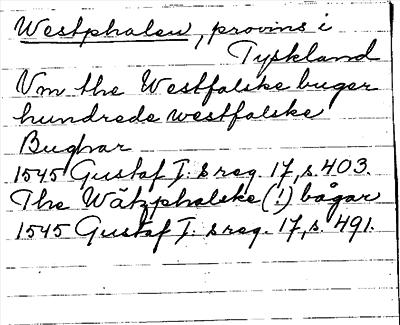 Westphalen, provins i
Tyskland
Vm the Westfalske buger
hundrede westfalske
Bughar
1545 Gustaf I:s reg. 17, s. 403.
The Wätzphalske (!) bågar
1545 Gustaf I:s reg. 17, s. 491.